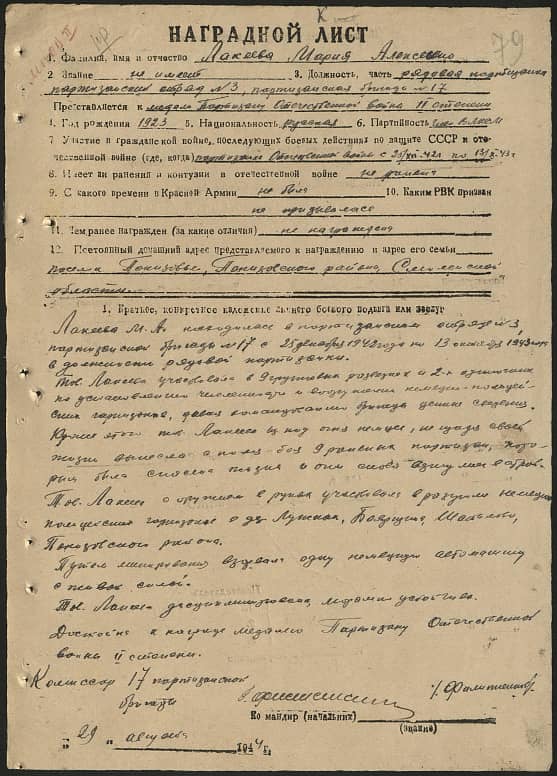 79
НАГРАДНОЙ ЛИСТ
1. Фамилия, имя и отчество Лакеева Мария Алексеевна
2. Звание не имеет 3. Должность, часть рядовая партизанка
партизанский отряд №3, партизанская бригада №17
Представляется к медали Партизану Отечественной войны II степени
4. Год рождения 1923 5. Национальность русская 6. Партийность член ВЛКСМ
7 Участие в гражданской войне, последующих боевых действиях по защите СССР и оте-
чественной войне (где, когда) партизанка Отечественной войны с 25/XII-42г по 13/X-43г
8. Имеет ли ранения и контузии в отечественной войне не ранена
9. С какого времени в Красной Армии не была 10. Каким РВК призван
не призывалась
11. Чем ранее награжден (за какие отличия) не награждена
12. Постоянный домашний адрес представляемого к награждению и адрес его семьи
поселок Понизовье, Понизовского района, Смоленской
области.
1. Краткое, конкретное изложение личного боевого подвига или заслуг
Лакеева М. А. находилась в партизанском отряде №3,
партизанской бригады №17 с 25 декабря 1942 года по 13 октября 1943 года
в должности рядовой партизанки.
Тов. Лакеева участвовала в 9 групповых разведках и 2-х
по установлению численности и вооружения немецко-полицей-
ских гарнизонов, давая командованию бригады ценные сведения.
Кроме этого тов. Лакеева из под огня немцев, не щадя своей
жизни вынесла с поля боя 9 раненых партизан, кото-
рым была спасена жизнь и они снова вернулись в строй.
Тов. Лакеева с оружием в руках участвовала в разгроме немецко
полицейских гарнизонов в д.д. Лужная, Боярщина,
Понизовского района.
Путем минирования взорвала одну немецкую автомашину
с живой силой.
Тов. Лакеева дисциплинирована, морально устойчива.
Достойна к награде медалью Партизану Отечественной
войны II степени.
Комиссар 17 партизанской
бригады
Командир (начальник)
(звание)
„29 августа 1944 г.